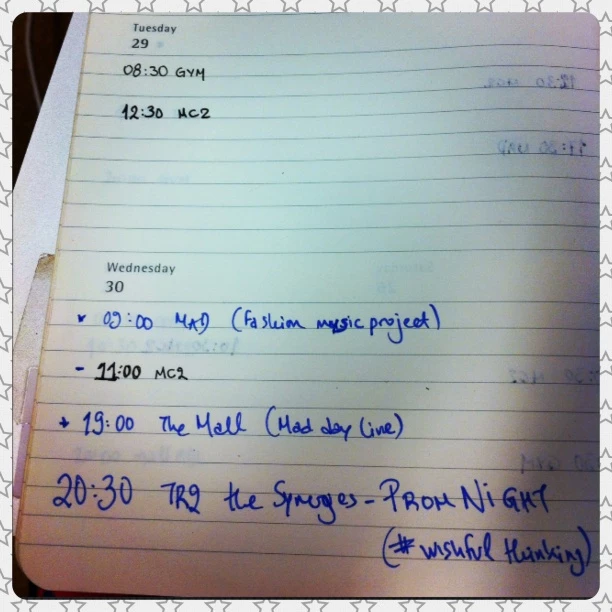 Tuesday
29
08:30 GYM
12:30 MC2
Wednesday
30
09:00 MAD (fashion music project)
- 11:00 MC2
+ 19:00 The Mall (Mad day line)
20:30 TR2 the - PROM NIGHT
(# wishful thinking)